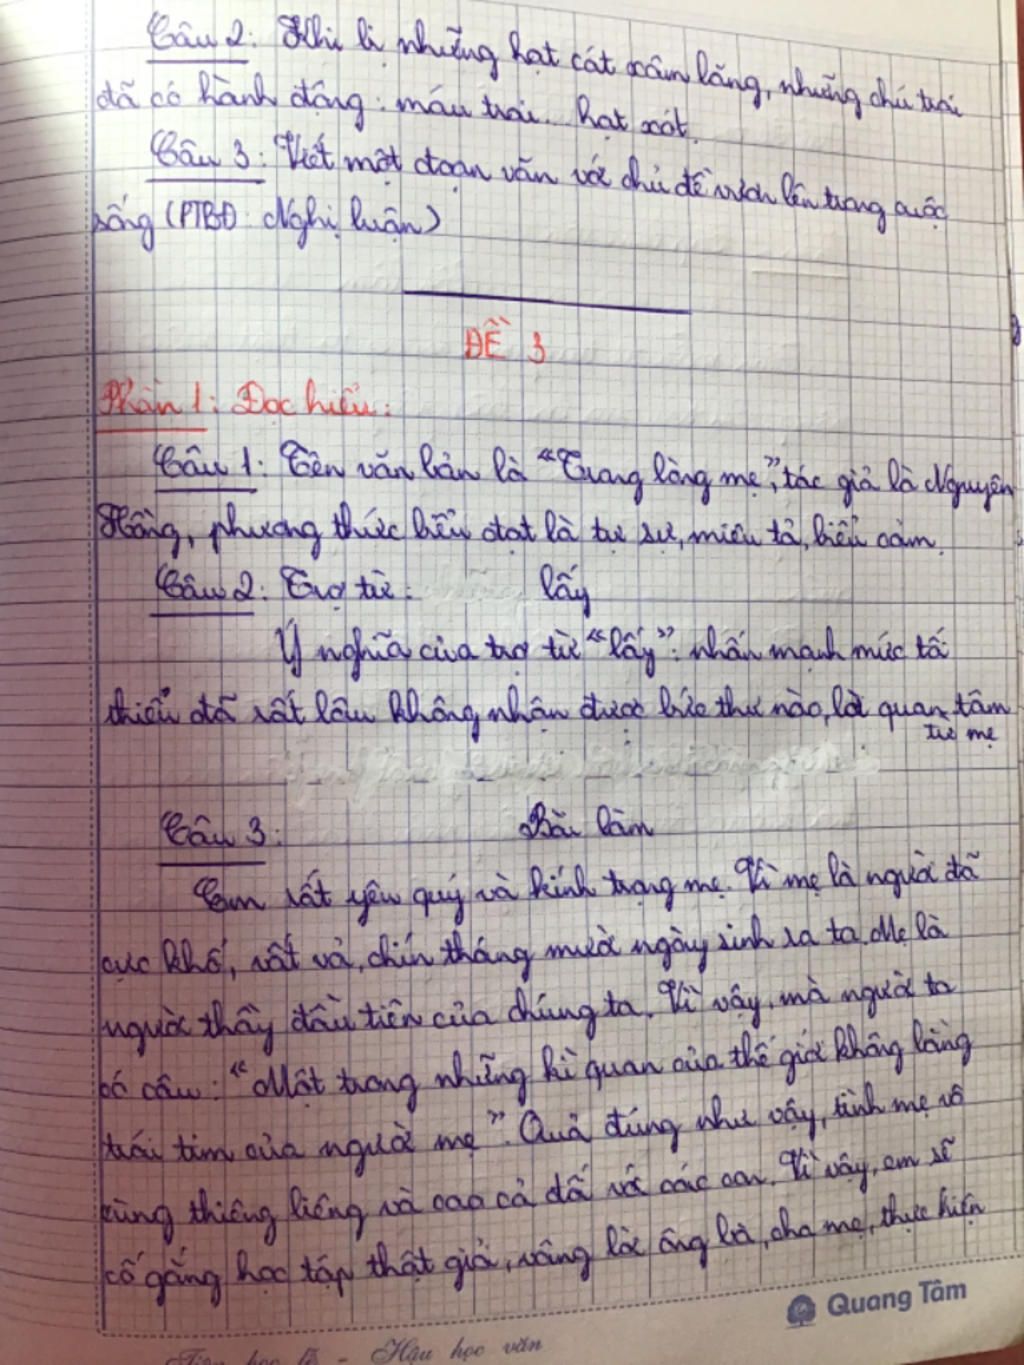 Câu 2: Khi bị những hạt cát xâm lăng, những chú trai
đã có hành động: máu trai... hạt xót.
Câu 3: Viết một đoạn văn với chủ đề vươn lên trong cuộc
sống (PTBĐ: Nghị luận)
ĐỀ 3
Phần 1: Đọc hiểu:
Câu 1: Tên văn bản là "Trong lòng mẹ", tác giả là Nguyên
Hồng, phương thức biểu đạt là tự sự, miêu tả, biểu cảm.
Câu 2: Trợ từ: lấy
Ý nghĩa của trợ từ "lấy": nhấn mạnh mức tối
thiểu đã rất lâu không nhận được bức thư nào, lời quan tâm
từ mẹ
Câu 3: Bài làm
Em rất yêu quý và kính trọng mẹ. Vì mẹ là người đã
cực khổ, vất vả, chín tháng mười ngày sinh ra ta. Mẹ là
người thầy đầu tiên của chúng ta. Vì vậy, mà người ta
có câu: "Một trong những kì quan của thế giới không bằng
trái tim của người mẹ". Quả đúng như vậy, tình mẹ vô
cùng thiêng liêng và cao cả đối với các con. Vì vậy, em sẽ
cố gắng học tập thật giỏi, vâng lời ông bà, cha mẹ, thực hiện
Quang Tâm
Tiên học lễ - Hậu học văn